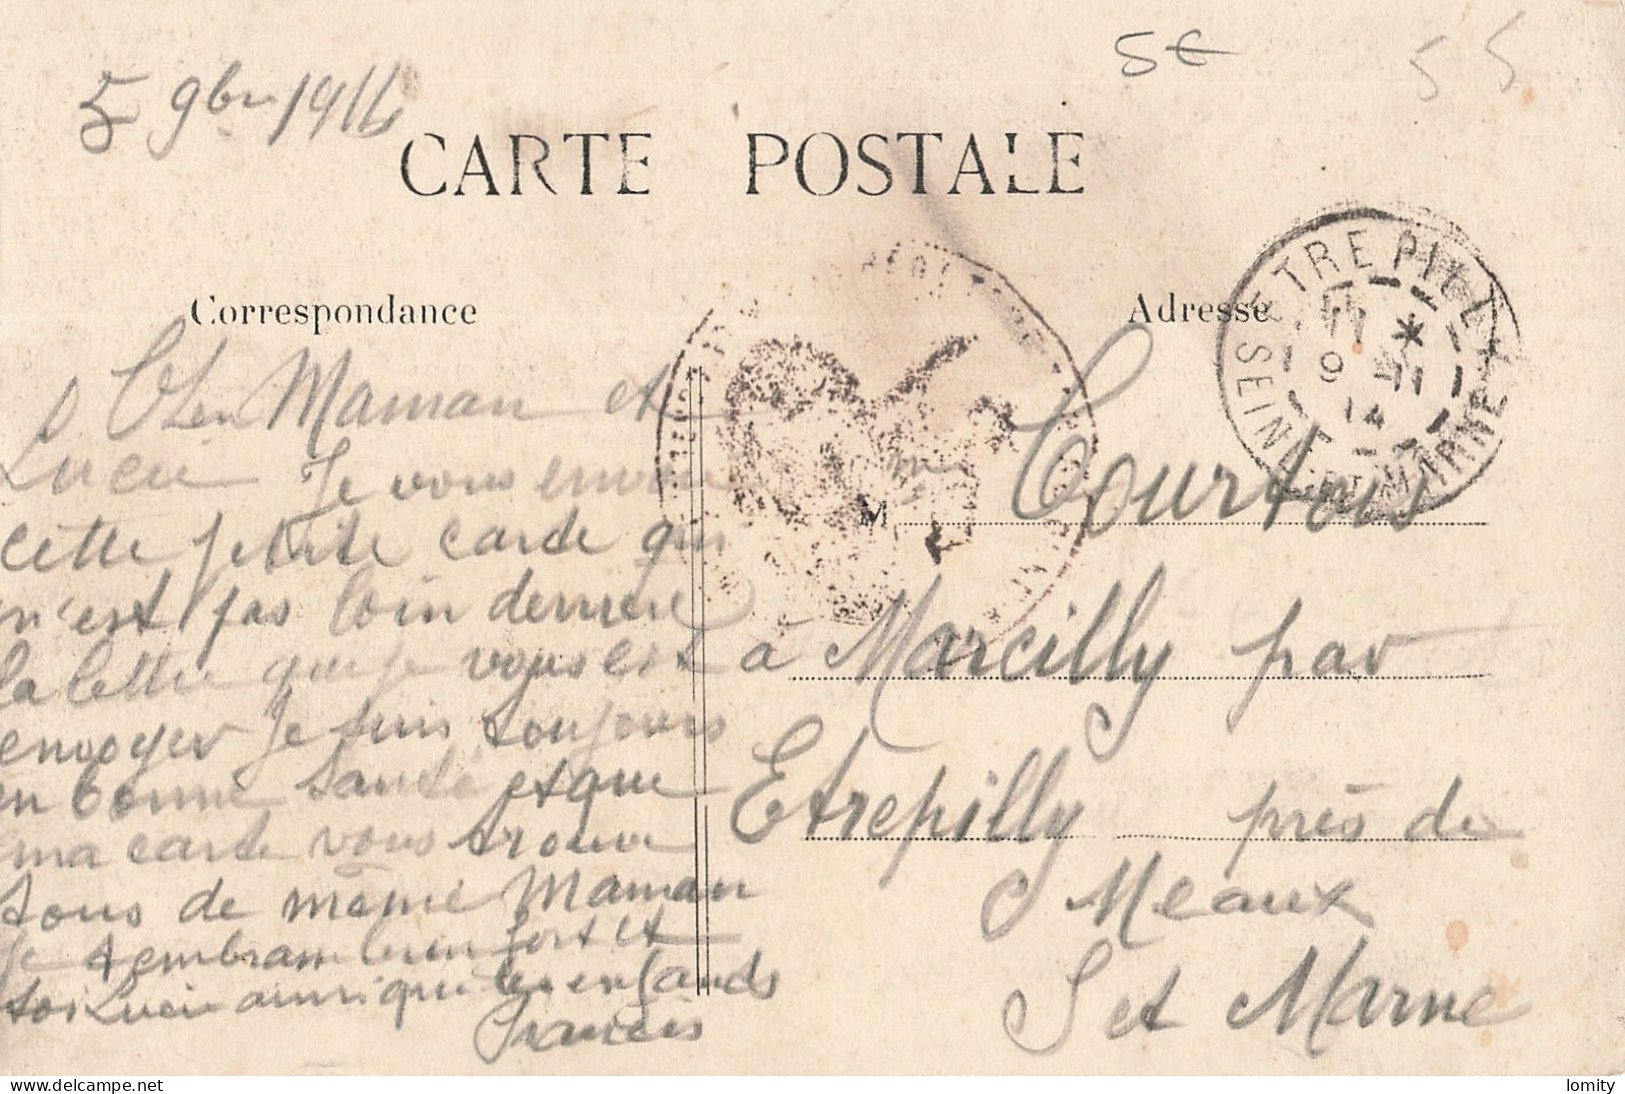 5€
55
5 9bre 1914
CARTE POSTALE
Correspondance
Adresse
ETREPILLY
11 *
9 -11
14
SEINE-ET-MARNE
Maman et
Lucie Je vous envoie
cette petite carte qui
n'est pas loin derrière
la lettre que je vous est
envoyer Je suis toujours
en bonne santé et que
ma carte vous trouve
tous de même Maman
Je t'embrasse bien fort et
toi Lucie ainsi que les enfands
Francis
M me Courtois
à Marcilly par
Etrepilly près de
Meaux
S et Marne
lomity